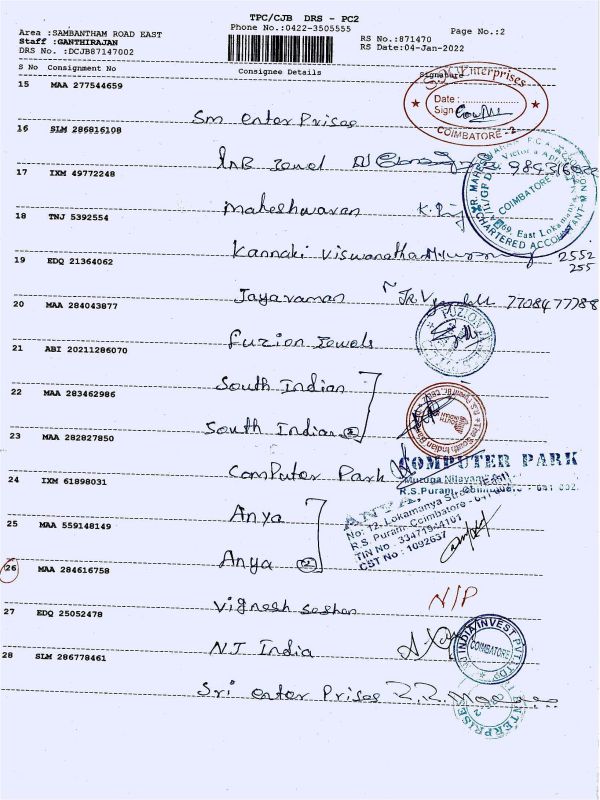 TPC/CJB DRS - PC2
Area :SAMBANTHAM ROAD EAST
Phone No.:0422-3505555
Page No.:2
Staff :GANTHIRAJAN
RS No.:871470
DRS No. :DCJB87147002
RS Date:04-Jan-2022
S No Consignment No
Consignee Details
Signature
15 MAA 277544659
Sm enterPrises
Enterprises
Date :
Sign
COIMBATORE - 2
16 SLM 286816108
Jewel
17 IXM 49772248
maheshwaran
COIMBATORE
CHARTERED ACCOUNTANT
18 TNJ 5392554
Kannaki Viswanathan
2552
255
19 EDQ 21364062
Jayaraman
7708477788
20 MAA 284043877
Fuzion Jewels
FUZION
21 ABI 20211286070
South Indian
22 MAA 283462986
South Indian 2
23 MAA 282827850
Computer Park
COMPUTER PARK
R.S.Puram,
24 IXM 61898031
Anya
ANYA
No: 12, Lokamanya Street (East)
R.S. Puram, Coimbatore - 641
TIN No : 33471944161
CST No : 1092637
25 MAA 559148149
Anya 2
26 MAA 284616758
Vignesh Seshan
N/P
27 EDQ 25052478
NJ India
NJ INDIA INVEST PVT LTD
COIMBATORE
28 SLM 286778461
Sri enterPrises